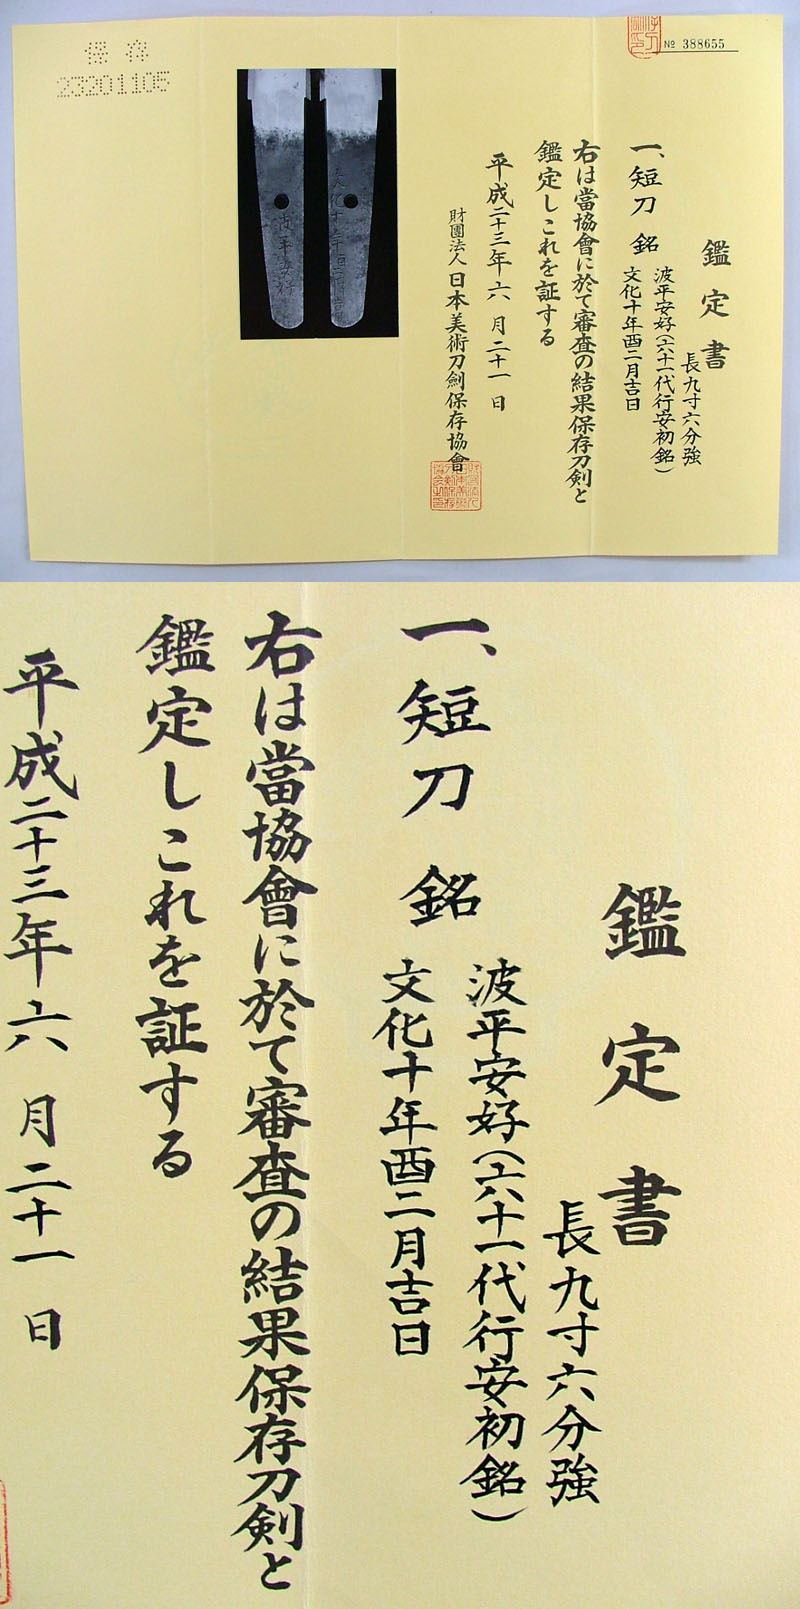 № 388655
鑑定書
長九寸六分強
一、短刀 銘
波平安好(六十一代行安初銘)
文化十年酉二月吉日
右は當協會に於て審査の結果保存刀剣と
鑑定しこれを証する
平成二十三年六月二十一日
財團法人 日本美術刀劍保存協會
保存
23201105
鑑定書
長九寸六分強
一、短刀 銘
波平安好(六十一代行安初銘)
文化十年酉二月吉日
右は當協會に於て審査の結果保存刀剣と
鑑定しこれを証する
平成二十三年六月二十一日